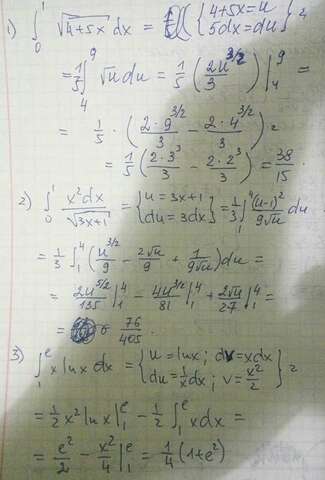 1) ∫₀¹ √(4+5x) dx = 1/5 {4+5x=u; 5dx=du} =
= 1/5 ∫₄⁹ √u du = 1/5 (2u^(3/2)/3) |₄⁹ =
= 1/5 · (2·9^(3/2)/3 − 2·4^(3/2)/3) =
= 1/5 (2·3³/3 − 2·2³/3) = 38/15.
2) ∫₀¹ x²dx/√(3x+1) = {u=3x+1; du=3dx} = 1/3 ∫₁⁴ (u−1)²/(9√u) du
= 1/3 ∫₁⁴ (u^(3/2)/9 − 2√u/9 + 1/(9√u)) du =
= 2u^(5/2)/135 |₁⁴ − 4u^(3/2)/81 |₁⁴ + 2√u/27 |₁⁴ =
= 76/405.
3) ∫₁ᵉ x lnx dx = {u=lnx; dv=xdx; du=1/x dx; v=x²/2} =
= 1/2 x² ln x |₁ᵉ − 1/2 ∫₁ᵉ x dx =
= e²/2 − x²/4 |₁ᵉ = 1/4 (1+e²)